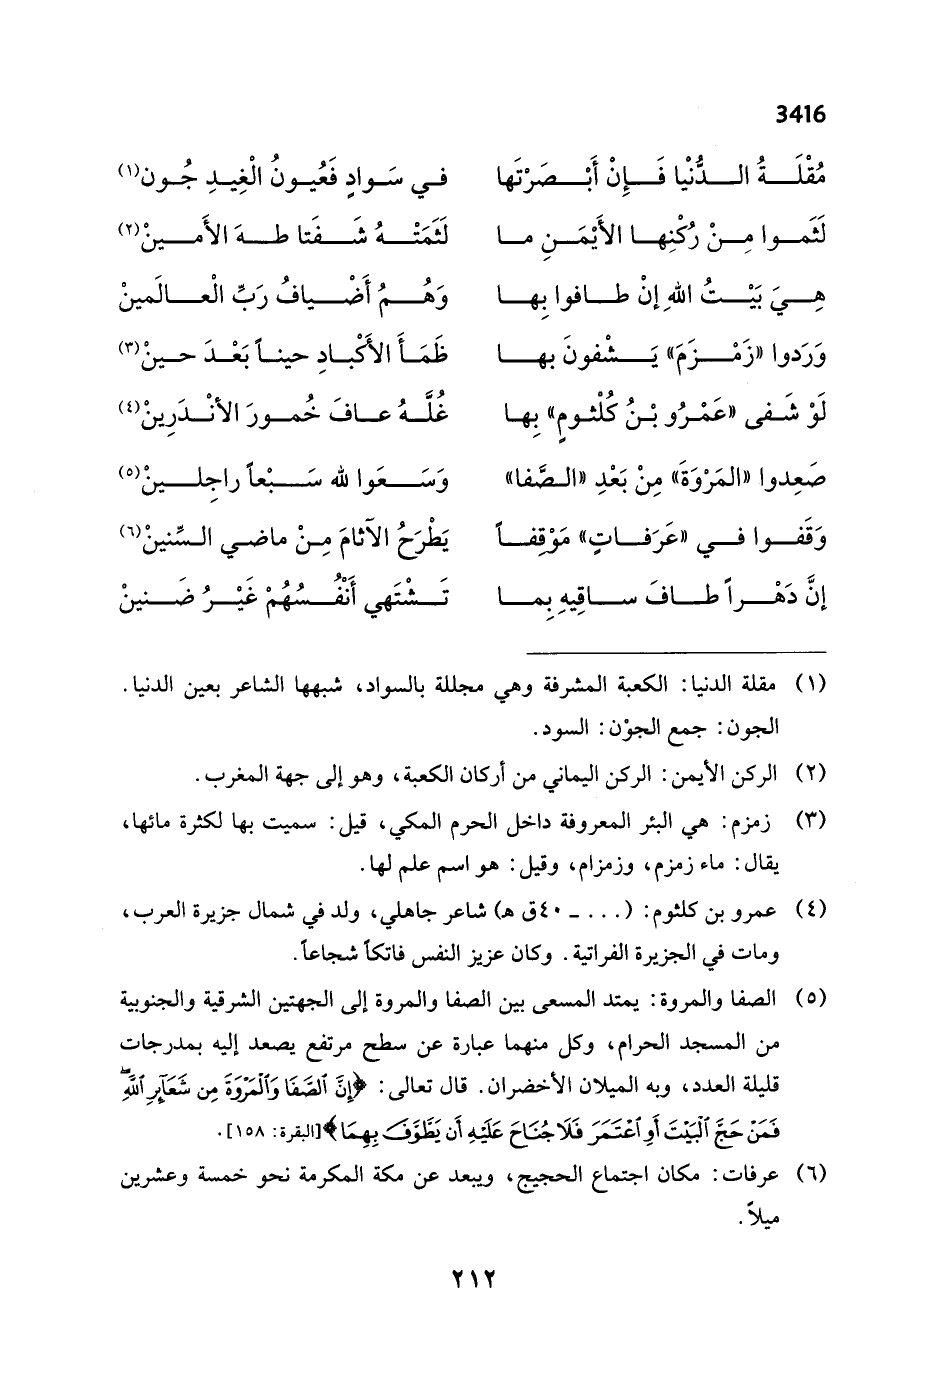 3416
مُقْلَةُ الدُّنْيا فَإِنْ أَبْصَرْتَها في سَوادٍ فَعُيونُ الْغِيدِ جُون(١)
لَثَموا مِنْ رُكْنِها الأَيْمَنِ ما لَثَمَتْهُ شَفَتا طهَ الأَمينْ(٢)
هِيَ بَيْتُ اللهِ إنْ طافوا بِها وَهُمُ أَضْيافُ رَبِّ الْعالَمينْ
وَرَدوا «زَمْزَمَ» يَشْفونَ بِها ظَمَأَ الأَكْبادِ حيناً بَعْدَ حينْ(٣)
لَوْ شَفى «عَمْرُو بْنُ كُلْثومٍ» بِها غُلَّهُ عافَ خُمورَ الأَنْدَرِينْ(٤)
صَعِدوا «المَرْوَةَ» مِنْ بَعْدِ «الصَّفا» وَسَعَوا لله سَبْعاً راجِلينْ(٥)
وَقَفوا في «عَرَفاتٍ» مَوْقِفاً يَطْرَحُ الآثامَ مِنْ ماضي السِّنينْ(٦)
إنَّ دَهْراً طافَ ساقِيهِ بِما تَشْتَهي أَنْفُسُهُمْ غَيْرُ ضَنينْ
(١) مقلة الدنيا: الكعبة المشرفة وهي مجللة بالسواد، شبهها الشاعر بعين الدنيا.
الجون: جمع الجوْن: السود.
(٢) الركن الأيمن: الركن اليماني من أركان الكعبة، وهو إلى جهة المغرب.
(٣) زمزم: هي البئر المعروفة داخل الحرم المكي، قيل: سميت بها لكثرة مائها،
يقال: ماء زمزم، وزمزام، وقيل: هو اسم علم لها.
(٤) عمرو بن كلثوم: (... ـ ٤٠ق هـ) شاعر جاهلي، ولد في شمال جزيرة العرب،
ومات في الجزيرة الفراتية. وكان عزيز النفس فاتكاً شجاعاً.
(٥) الصفا والمروة: يمتد المسعى بين الصفا والمروة إلى الجهتين الشرقية والجنوبية
من المسجد الحرام، وكل منهما عبارة عن سطح مرتفع يصعد إليه بمدرجات
قليلة العدد، وبه الميلان الأخضران. قال تعالى: ﴿إِنَّ ٱلصَّفَا وَٱلْمَرْوَةَ مِن شَعَآئِرِ ٱللَّهِۖ
فَمَنْ حَجَّ ٱلْبَيْتَ أَوِ ٱعْتَمَرَ فَلَا جُنَاحَ عَلَيْهِ أَن يَطَّوَّفَ بِهِمَا﴾ [البقرة: ١٥٨].
(٦) عرفات: مكان اجتماع الحجيج، ويبعد عن مكة المكرمة نحو خمسة وعشرين
ميلاً.
٢١٢